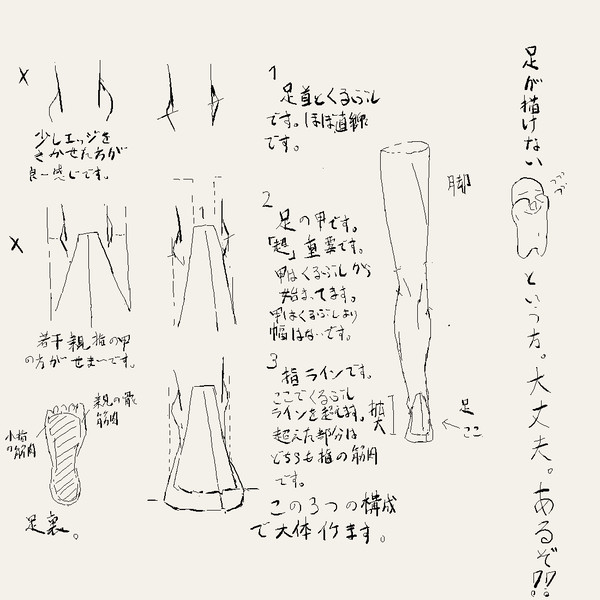 足が描けない
という方。大丈夫。あるぞ!?
1
足首とくるぶし
です。ほぼ直線
です。
×
少しエッジを
きかせた方が
良い感じです。
2
足の甲です。
「超」重要です。
甲はくるぶしから
始まってます。
甲はくるぶしより
幅はないです。
×
若干親指の甲
の方がせまいです。
3
指ラインです。
ここでくるぶし
ラインを超えます。
超えた部分は
どちらも指の筋肉
です。
この3つの構成
で大体イケます。
脚
拡大
足
ここ
親の骨
筋肉
小指
の筋肉
足裏。